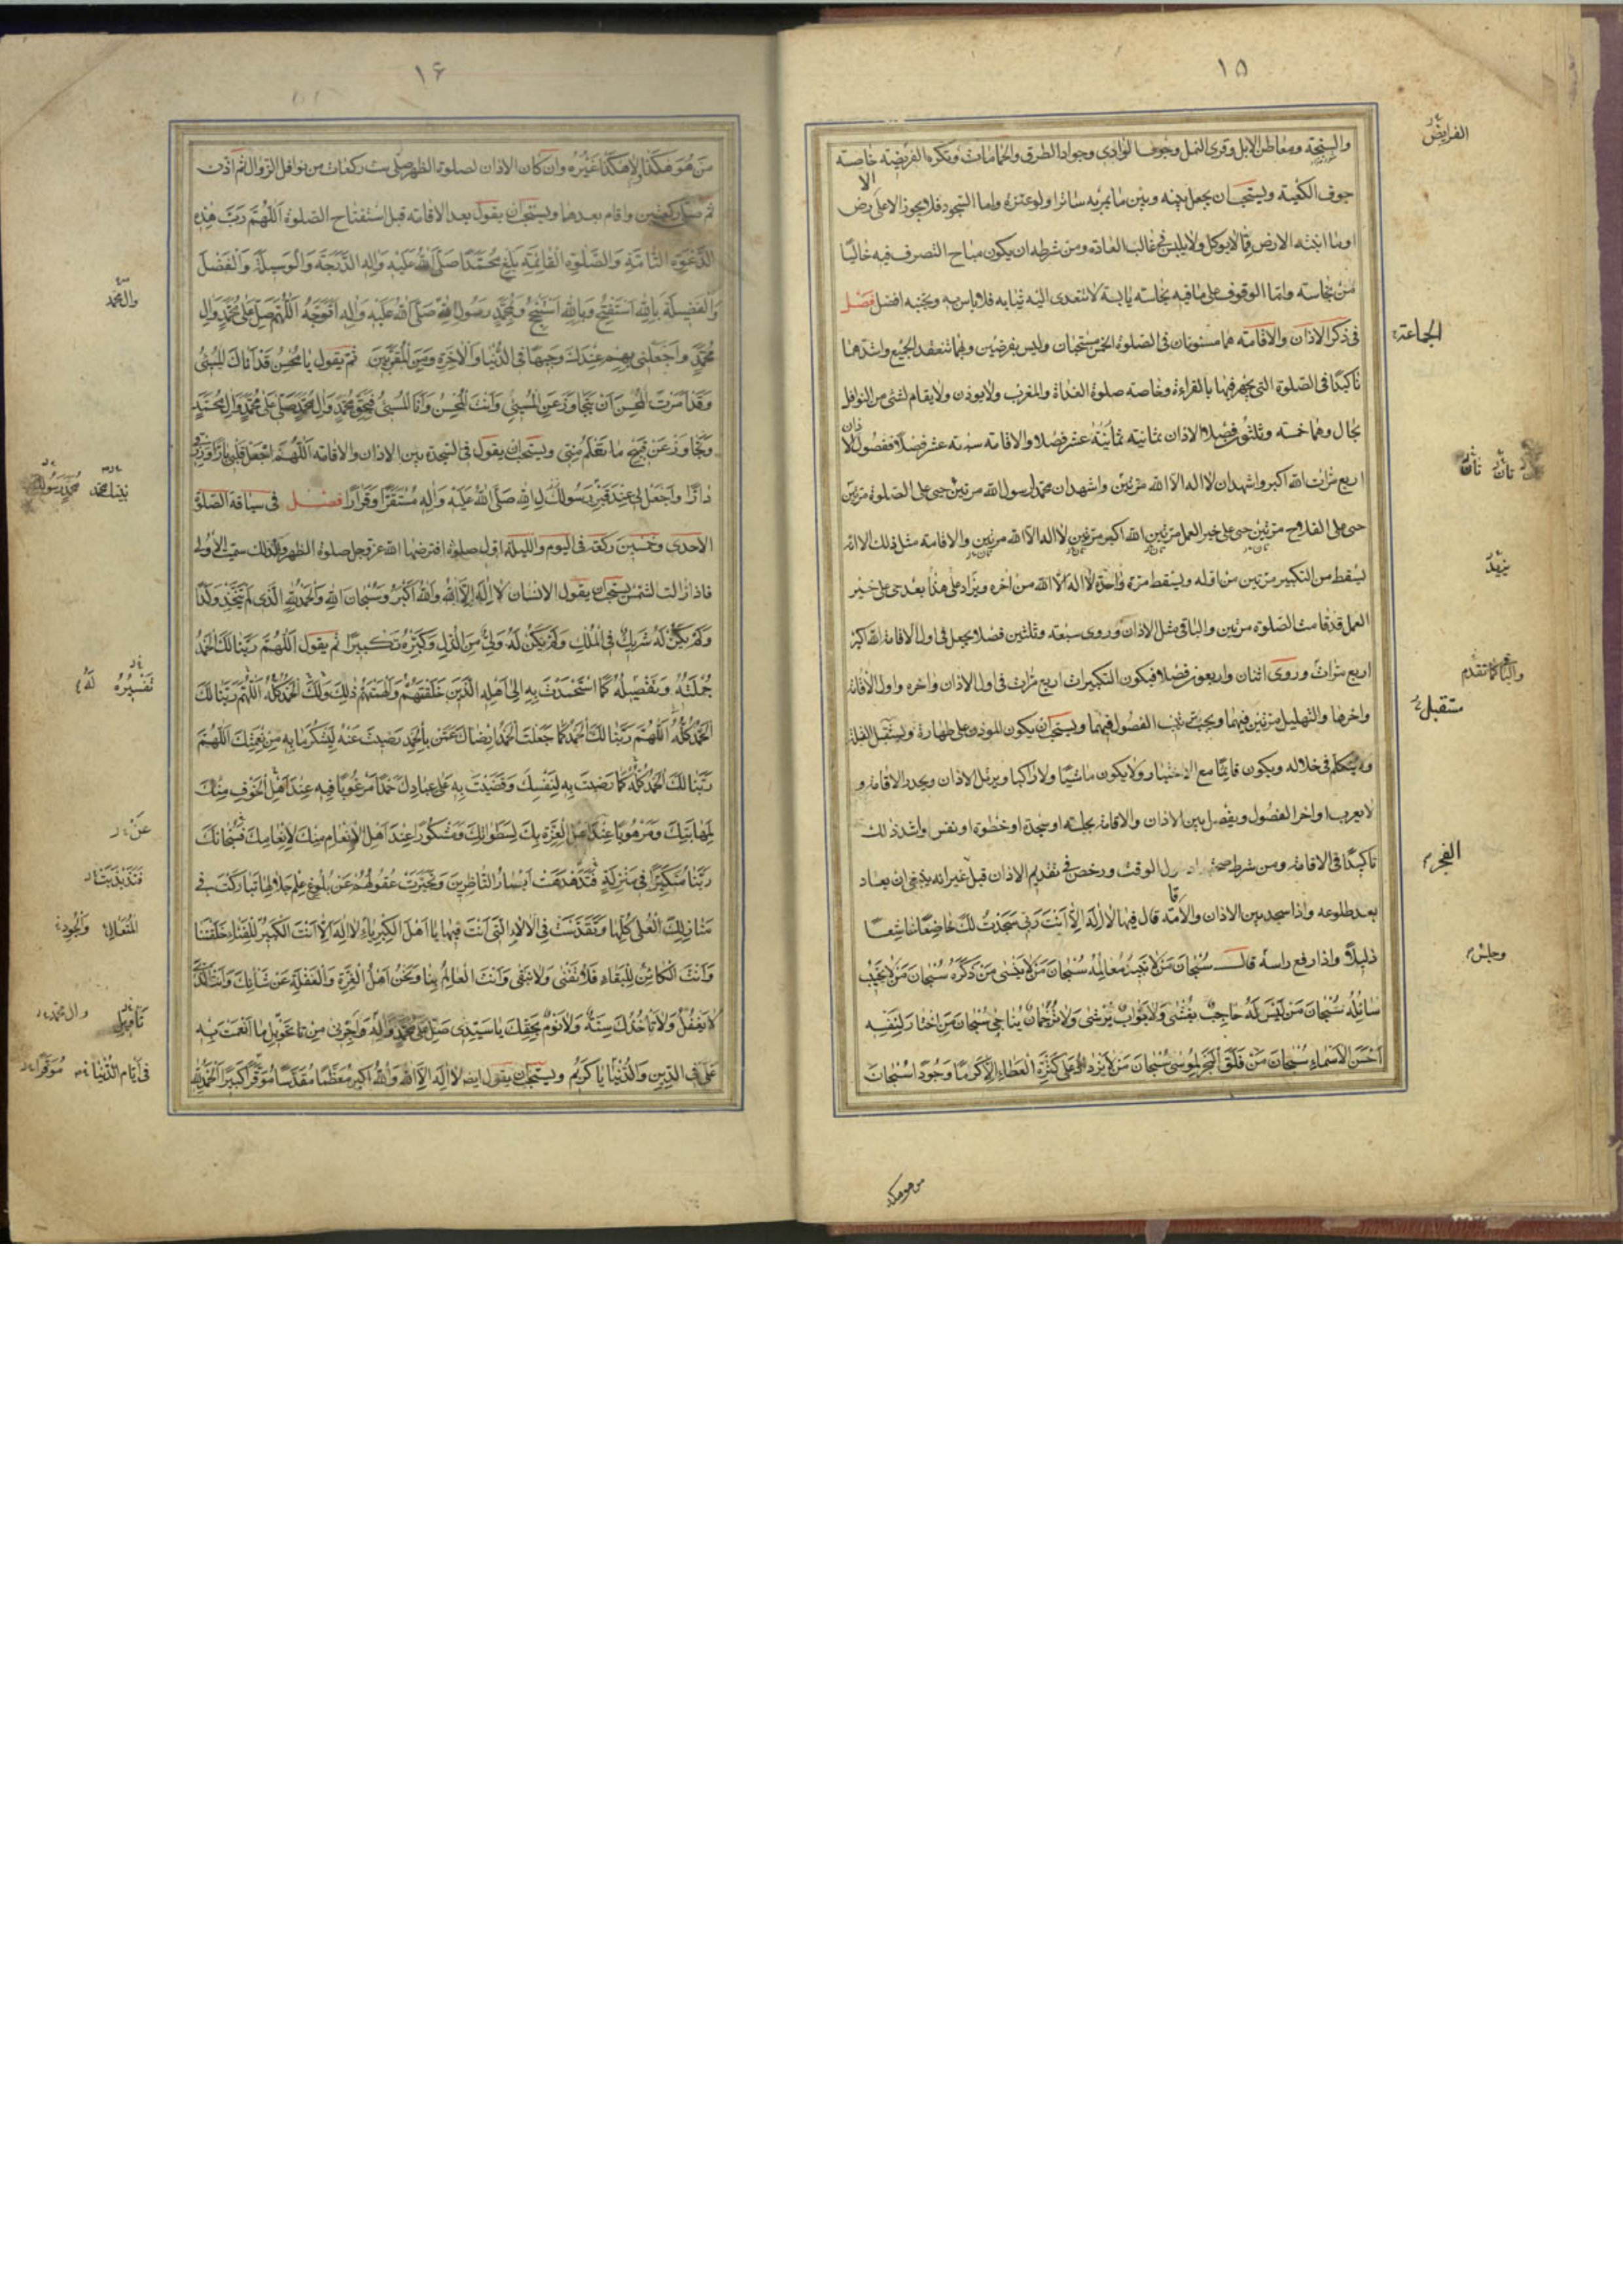 ١٥
والسبخة ومعاطن الابل وقرى النمل وجوف الوادي وجواد الطرق والحمامات وتكره الفريضة خاصة
جوف الكعبة ويستحب ان يجعل بينه وبين ما يمر به ساترا ولو عنزة واما السجود فلا يجوز الا على الارض
او ما انبته الارض مما لا يوكل ولا يلبس في غالب العادة ومن شرطه ان يكون مباح التصرف فيه خاليا
من نجاسة واما الوقوف على ما فيه نجاسة يابسة لا تتعدى اليه ثيابه فلا باس به وتجنبه افضل فصل
في ذكر الاذان والاقامة هما مسنونان في الصلوة الخمس مستحبان وليس بفرضين وبهما تنعقد الجميع واشدهما
تاكيدا في الصلوة التي يجهر فيها بالقراءة وخاصة صلوة الغداة والمغرب ولا يوذن ولا يقام لشئ من النوافل
بحال وهما خمسة وثلثون فصلا الاذان ثمانية عشر فصلا والاقامة سبعة عشر فصلا ففصول الاذان
اربع مرات الله اكبر واشهد ان لا اله الا الله مرتين واشهد ان محمدا رسول الله مرتين حي على الصلوة مرتين
حي على الفلاح مرتين حي على خير العمل مرتين الله اكبر مرتين لا اله الا الله مرتين والاقامة مثل ذلك الا انه
يسقط من التكبير مرتين من اوله ويسقط مرة واحدة لا اله الا الله من اخره ويزاد على هذا بعد حي على خير
العمل قد قامت الصلوة مرتين والباقي مثل الاذان وروى سبعة وثلثين فصلا يجعل في اول الاقامة الله اكبر
اربع مرات وروى اثنان واربعون فصلا فيكون التكبيرات اربع مرات في اول الاذان واخره واول الاقامة
واخرها والتهليل مرتين فيهما ويجب ترتيب الفصول فيهما ويستحب ان يكون الموذن على طهارة ويستقبل القبلة
ولا يتكلم في خلاله ويكون قائما مع الاختيار ولا يكون ماشيا ولا راكبا ويرتل الاذان ويحدر الاقامة و
لا يعرب اواخر الفصول ويفصل بين الاذان والاقامة بجلسة او سجدة او خطوة او نفس واشد ذلك
تاكيدا في الاقامة ومن شرط صحة دخول الوقت ورخص في تقديم الاذان قبل غير انه ينبغي ان يعاد
بعد طلوعه واذا سجد بين الاذان والاقامة قال فيها لا اله الا انت ربي سجدت لك خاضعا خاشعا
ذليلا واذا رفع راسه قال سبحان من لا تبيد معالمه سبحان من لا ينسى من ذكره سبحان من لا يخيب
سائله سبحان من ليس له حاجب يغشى ولا بواب يرشى ولا ترجمان يناجي سبحان من اختار لنفسه
احسن الاسماء سبحان من فلق البحر لموسى سبحان من لا يزداد على كثرة العطاء الا كرما وجودا سبحان
من هو هكذا
الفرايض
الجماعة
مستقبل
والباقي كما تقدم
الفجر
وجلس
١٦
من هو هكذا ولا هكذا غيره وان كان الاذان لصلوة الظهر صلى ست ركعات من نوافل الزوال ثم اذن
ثم صلى ركعتين واقام بعدها ويستحب ان يقول بعد الاقامة قبل استفتاح الصلوة اللهم رب هذه
الدعوة التامة والصلوة القائمة بلغ محمدا صلى الله عليه واله الدرجة والوسيلة والفضل
والفضيلة بالله استفتح وبالله استنجح وبمحمد رسول الله صلى الله عليه واله اتوجه اللهم صل على محمد وال
محمد واجعلني بهم عندك وجيها في الدنيا والاخرة ومن المقربين ثم يقول يا محسن قد اتاك المسئ
وقد امرت المحسن ان يتجاوز عن المسئ وانت المحسن وانا المسئ فبحق محمد وال محمد صل على محمد وال محمد
وتجاوز عن قبيح ما تعلم مني ويستحب ان يقول في السجدة بين الاذان والاقامة اللهم اجعل قلبي بارا ورزقي
دارا واجعل لي عند قبر رسولك رسول الله صلى الله عليه واله مستقرا وقرارا فصل في سياقة الصلوة
الاحدى وخمسين ركعة في اليوم والليلة اول صلوة افترضها الله عز وجل صلوة الظهر ولذلك سميت الاولى
فاذا زالت الشمس يستحب ان يقول الانسان لا اله الا الله والله اكبر وسبحان الله والحمد لله الذي لم يتخذ ولدا
ولم يكن له شريك في الملك ولم يكن له ولي من الذل وكبره تكبيرا ثم يقول اللهم ربنا لك الحمد
جملته وتفصيله كما استحمدت به الى اهله الذين خلقتهم والهمتهم ذلك ولك الحمد كله اللهم ربنا لك
الحمد كله اللهم ربنا لك الحمد كما جعلت الحمد رضاك عمن بالحمد رضيت عنه ليشكر ما به من نعمتك اللهم
ربنا لك الحمد كله كما رضيت به لنفسك وقضيت به على عبادك حمدا مرغوبا فيه عند اهل الخوف منك
لمهابتك ومرهوبا عند اهل العزة بك لسطواتك ومشكورا عند اهل الانعام منك لانعامك فسبحانك
ربنا متكبرا في منزلة تدهدهت ابصار الناظرين وتحيرت عقولهم عن بلوغ علم جلالها تباركت في
منازلك العلى كلها وتقدست في الالاء التي انت فيها يا اهل الكبرياء لا اله الا انت الكبير للفناء خلقتنا
وانت الكائن للبقاء فلا تفنى ولا نبقى وانت العالم بنا ونحن اهل الغرة والغفلة عن شانك وانت الذي
لا تغفل ولا تاخذك سنة ولا نوم بحقك يا سيدي صل على محمد واله واجرني من تحويل ما انعمت به
علي في الدين والدنيا يا كريم ويستحب ان يقول ايضا لا اله الا الله والله اكبر معظما مقدسا موقرا كبيرا الحمد لله
وال محمد
نبينا محمد محمد رسولك
تفسيره له
عن
فتذبذبت
المتعالى والجود
وال محمد
في ايام الدنيا موقرا